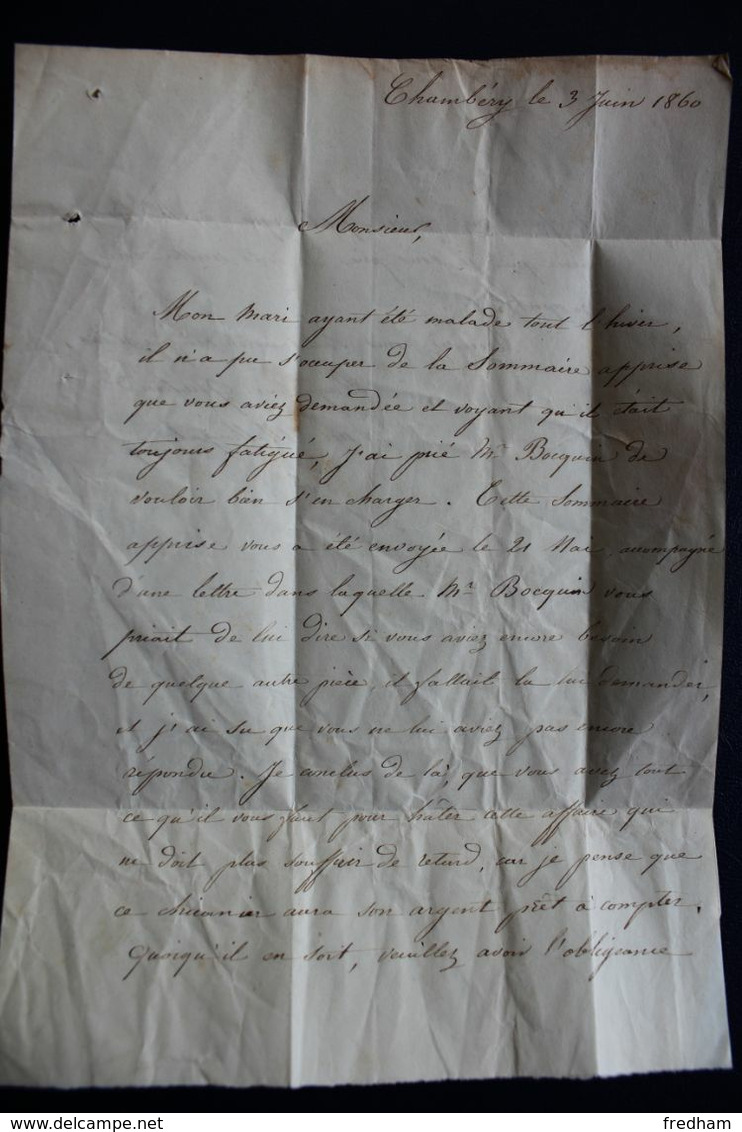 Chambéry le 3 Juin 1860
Monsieur,
Mon mari ayant été malade tout l'hiver,
il n'a pu s'occuper de la Sommaire apprise
que vous aviez demandée et voyant qu'il était
toujours fatigué, j'ai prié Mr Bocquin de
vouloir bien s'en charger. Cette Sommaire
apprise vous a été envoyée le 21 Mai, acompagné
d'une lettre dans laquelle Mr Bocquin vous
priait de lui dire si vous aviez encore besoin
de quelque autre pièce, il fallait la lui demander,
et j'ai su que vous ne lui aviez pas encore
répondu. Je conclus de là, que vous avez tout
ce qu'il vous faut pour hâter cette affaire qui
ne doit plus souffrir de retard, car je pense que
ce chicanier aura son argent prêt à compter.
Quoiqu'il en soit, veuillez avoir l'obligeance
fredham
www.delcampe.net